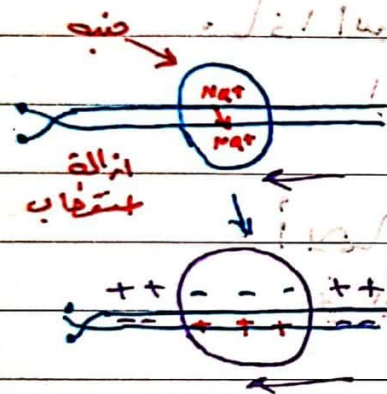 منبه
Na+
Na+
ازالة
استقطاب
++ - - - ++
-- + + + --